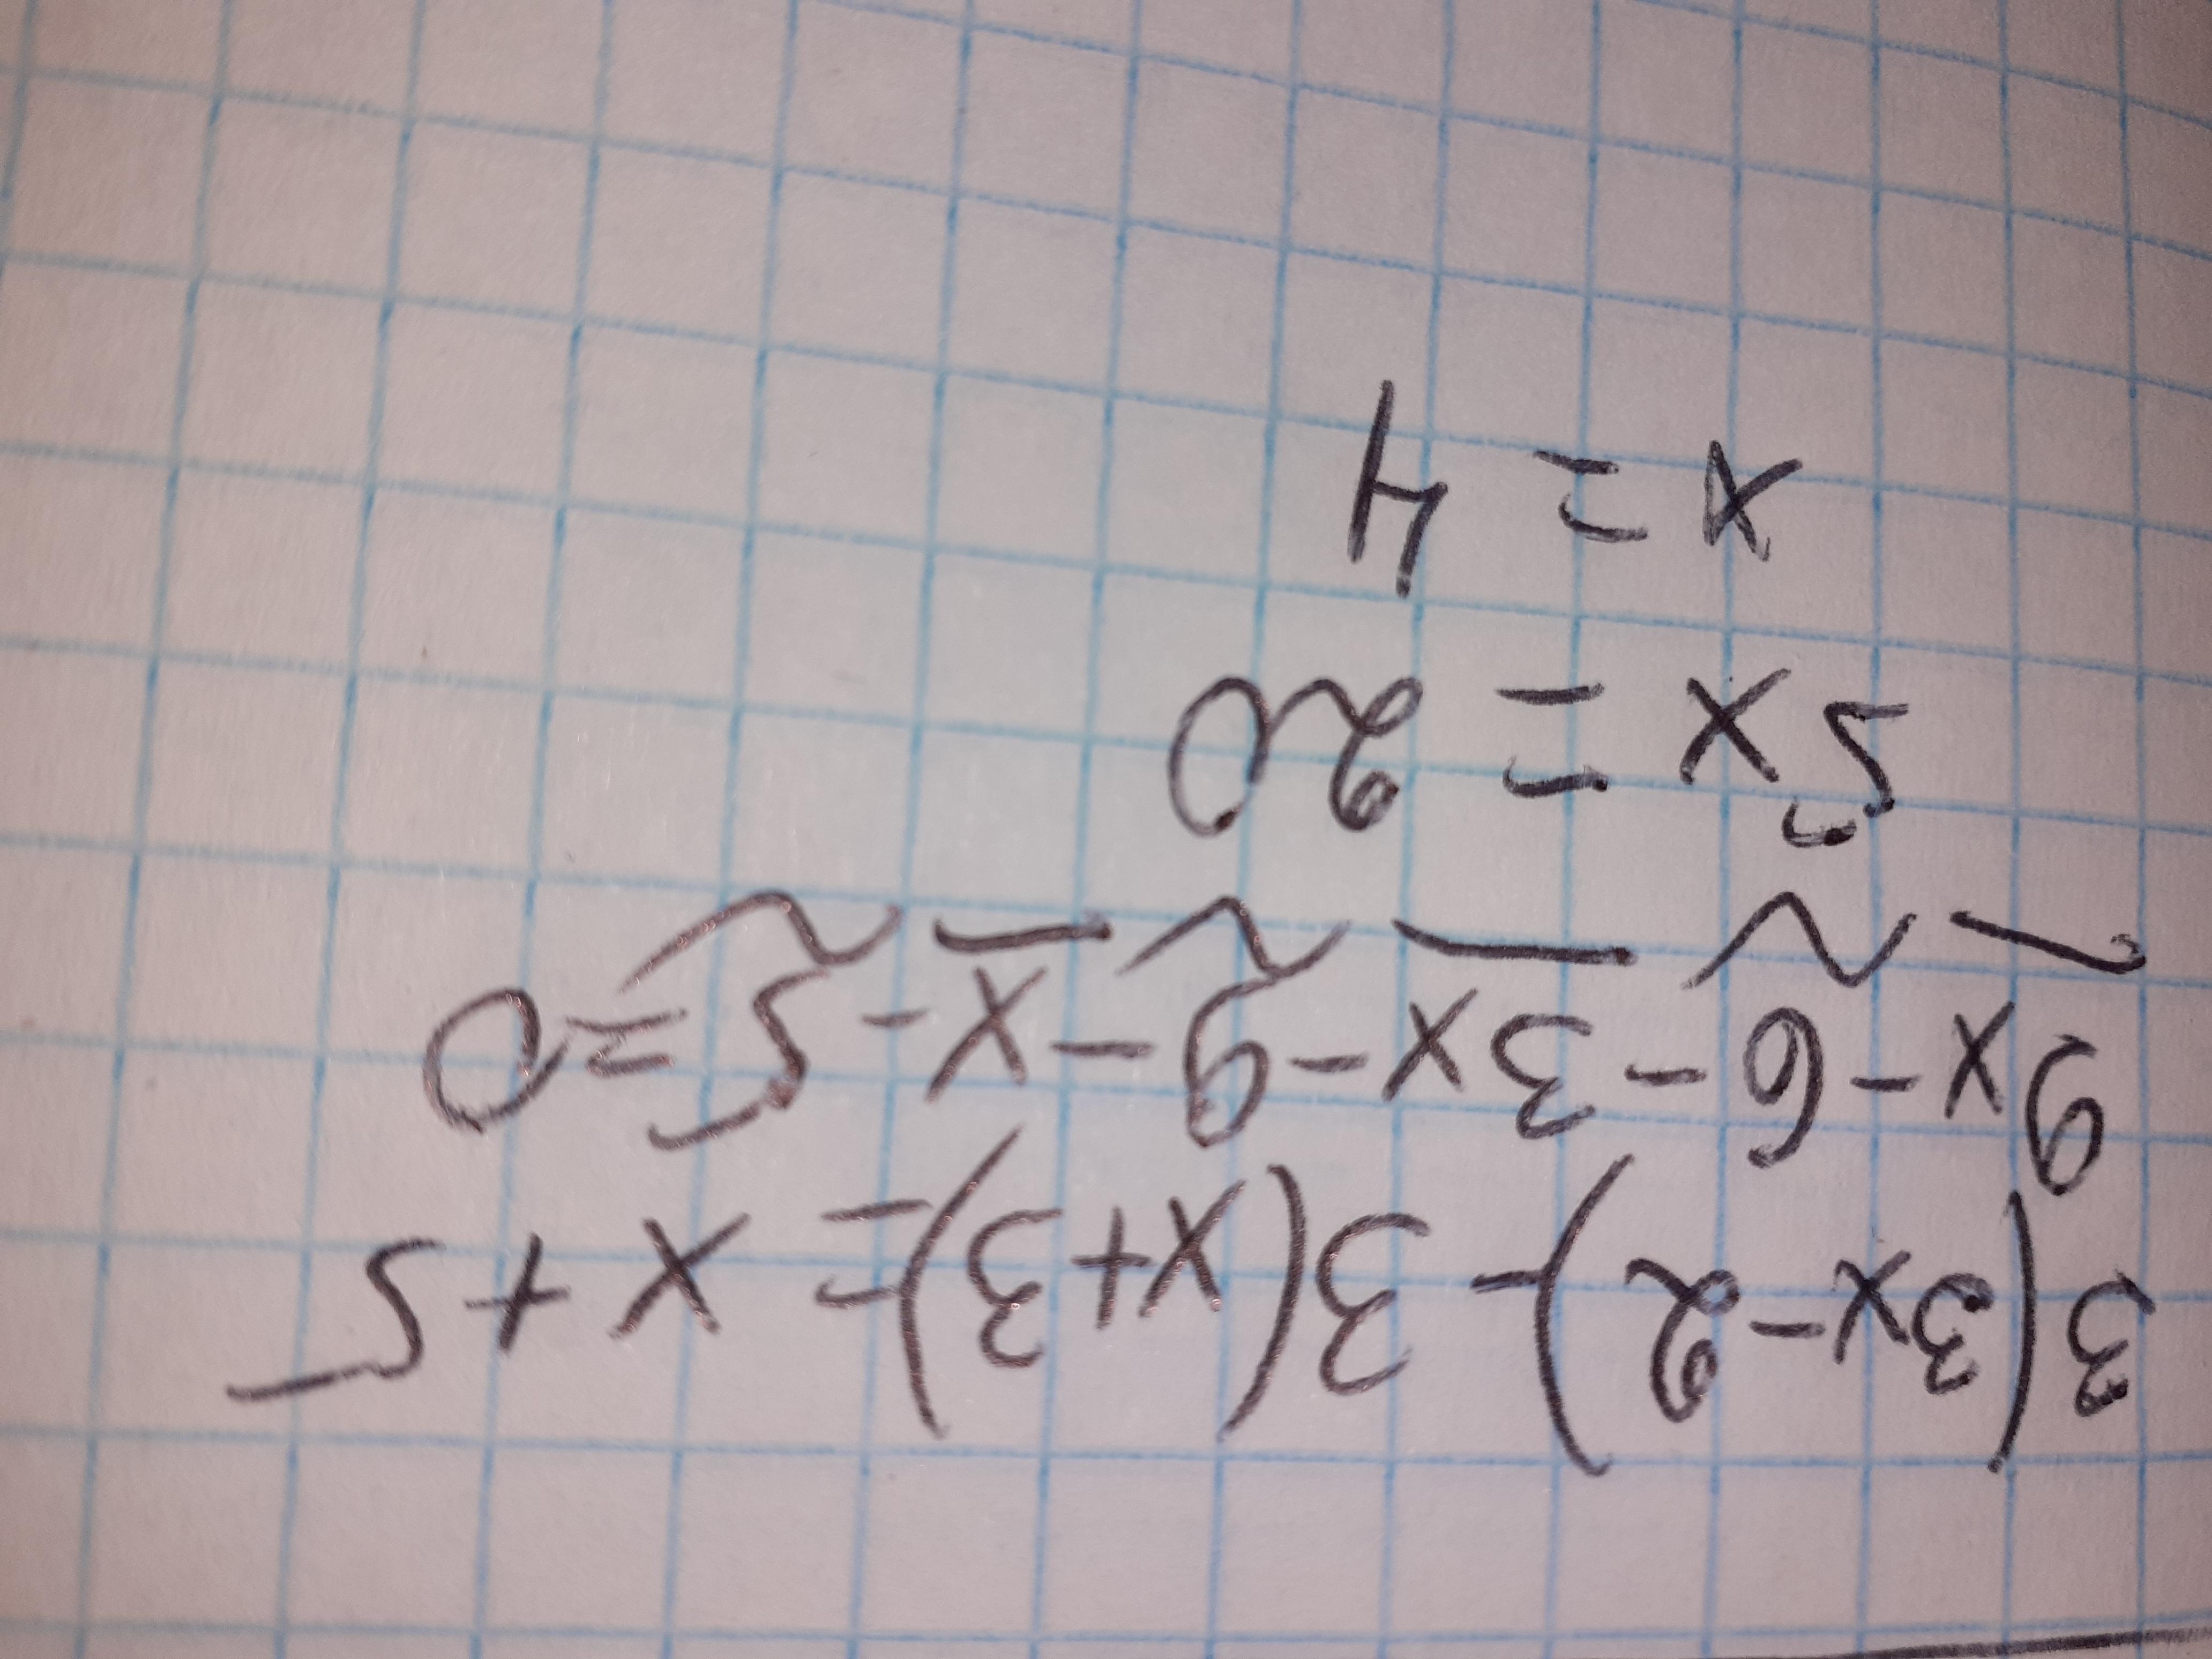 3(3x-2)-3(x+3)=x+5
9x-6-3x-9-x-5=0
5x=20
x=4